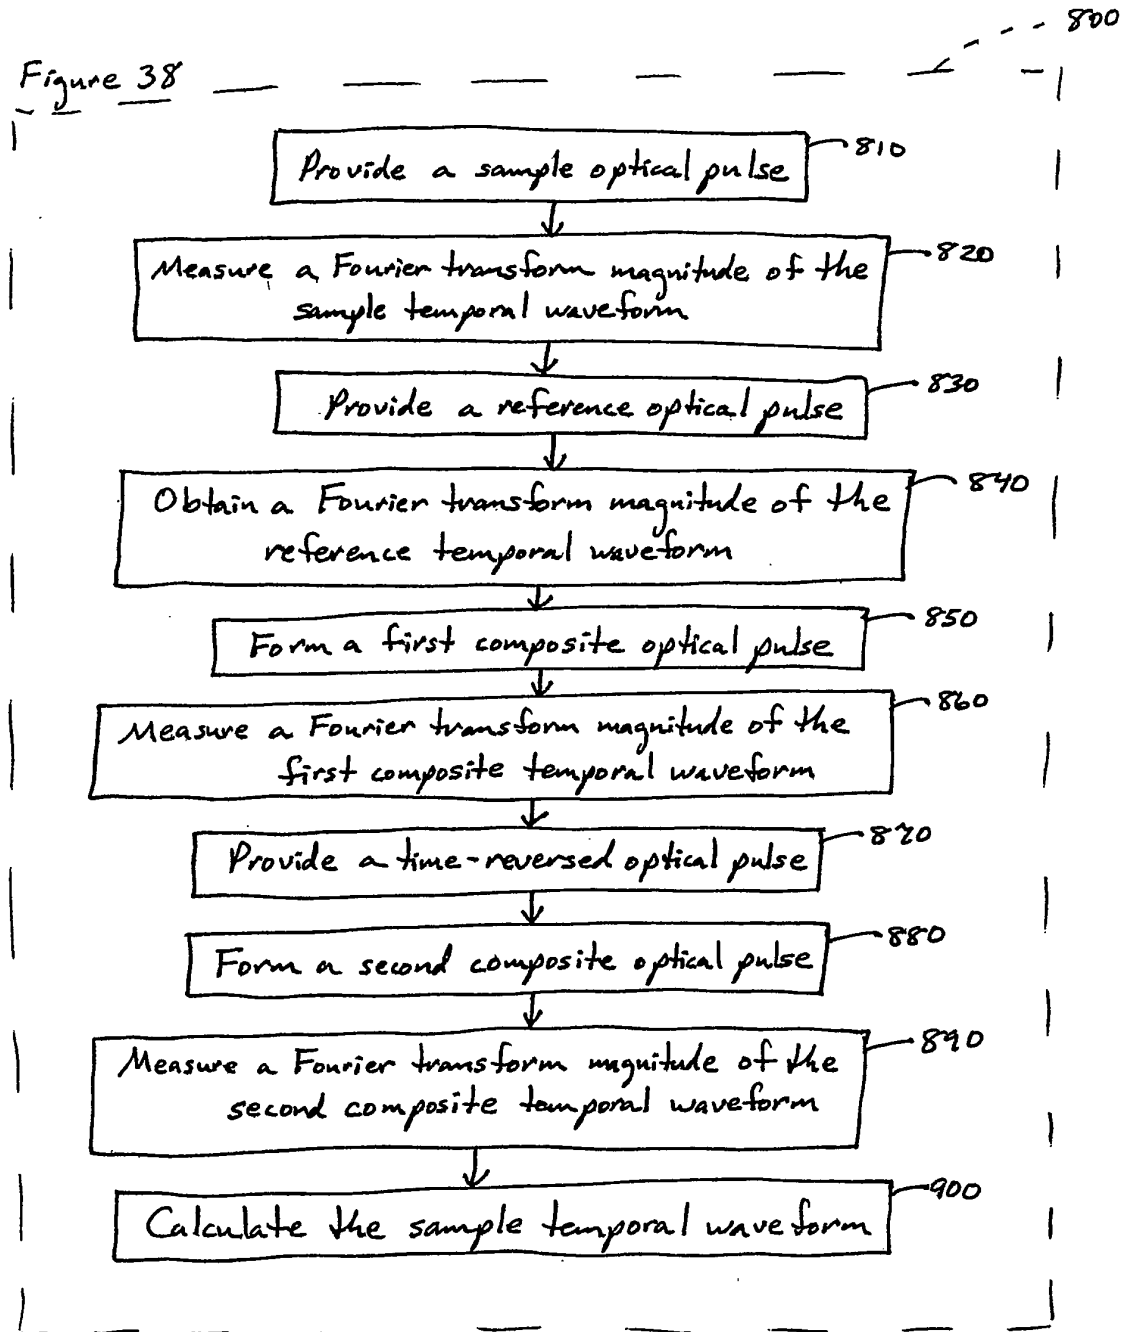 800
Figure 38
Provide a sample optical pulse
810
Measure a Fourier transform magnitude of the
sample temporal waveform
820
Provide a reference optical pulse
830
Obtain a Fourier transform magnitude of the
reference temporal waveform
840
Form a first composite optical pulse
850
Measure a Fourier transform magnitude of the
first composite temporal waveform
860
Provide a time-reversed optical pulse
870
Form a second composite optical pulse
880
Measure a Fourier transform magnitude of the
second composite temporal waveform
890
Calculate the sample temporal waveform
900